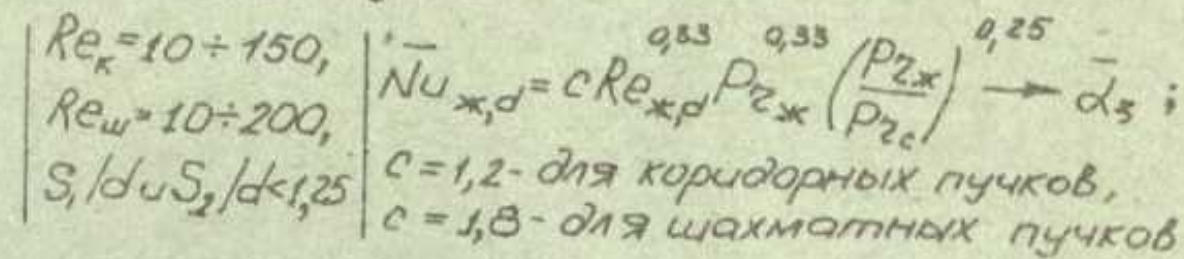 Re_к=10÷150,
Re_ш=10÷200,
S₁/d и S₂/d<1,25
N̄u_ж,d = cRe_ж,d^0,33 Pr_ж^0,33 (Pr_ж/Pr_c)^0,25 → ᾱ₃ ;
c=1,2- для коридорных пучков,
c=1,8- для шахматных пучков